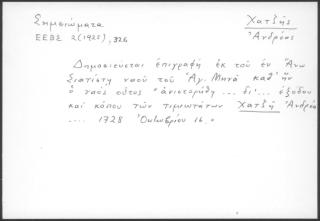 Σημειώματα
Χατζῆς
ΕΕΒΣ 2 (1925), 326
Ἀνδρέας
Δημοσιεύεται ἐπιγραφὴ ἐκ τοῦ ἐν Ἄνω
Σιατίστῃ ναοῦ τοῦ Ἁγ. Μηνᾶ καθ' ἣν
ὁ ναὸς οὗτος "ἀνιστορήθη ... δι' .. ἐξόδου
καὶ κόπου τῶν τιμιωτάτων Χατζῆ Ἀνδρέα
.... 1728 Ὀκτωβρίου 16.